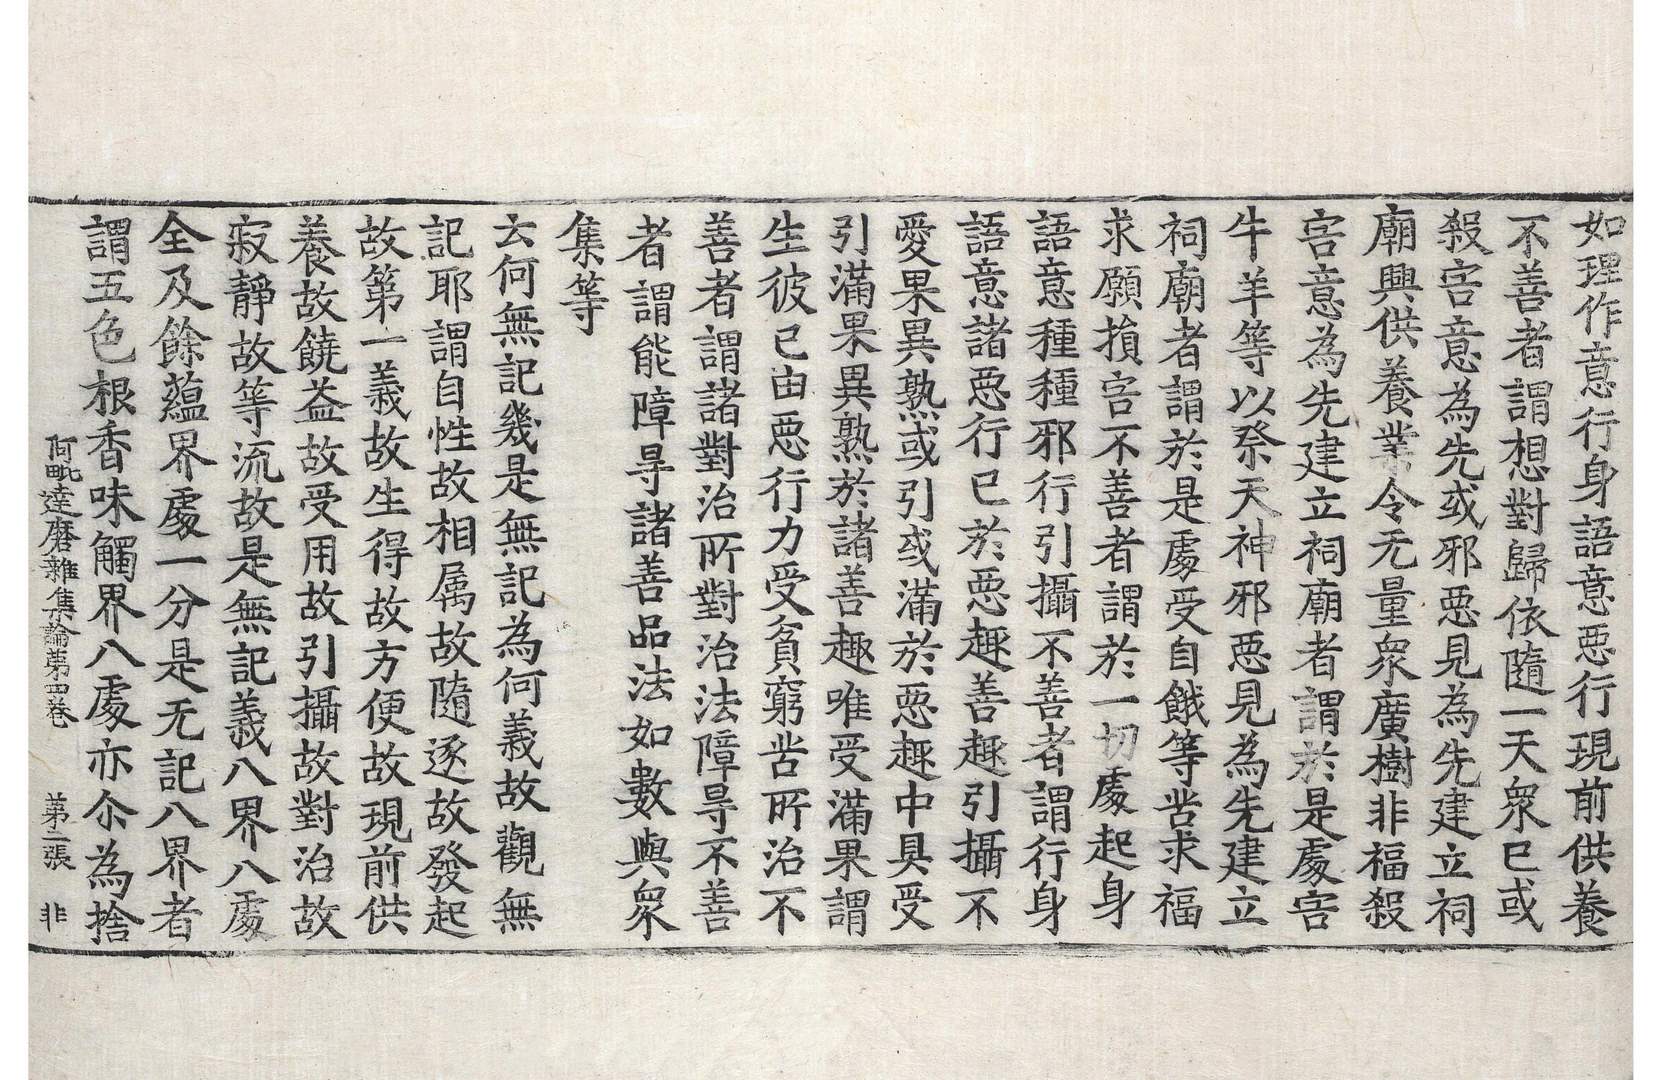 如理作意行身語意惡行現前供養
不善者謂想對歸依隨一天衆已或
殺害意為先或邪惡見為先建立祠
廟興供養業令无量衆廣樹非福殺
害意為先建立祠廟者謂於是處害
牛羊等以祭天神邪惡見為先建立
祠廟者謂於是處受自餓等苦求福
求願損害不善者謂於一切處起身
語意種種邪行引攝不善者謂行身
語意諸惡行已於惡趣善趣引攝不
愛果異熟或引或滿於惡趣中具受
引滿果異熟於諸善趣唯受滿果謂
生彼已由惡行力受貧窮苦所治不
善者謂諸對治所對治法障㝵不善
者謂能障㝵諸善品法如數與衆
集等
云何無記幾是無記為何義故觀無
記耶謂自性故相属故隨逐故發起
故第一義故生得故方便故現前供
養故饒益故受用故引攝故對治故
寂靜故等流故是無記義八界八處
全及餘蘊界處一分是无記八界者
謂五色根香味觸界八處亦尒為捨
阿毗達磨雜集論第四卷 第二張 非